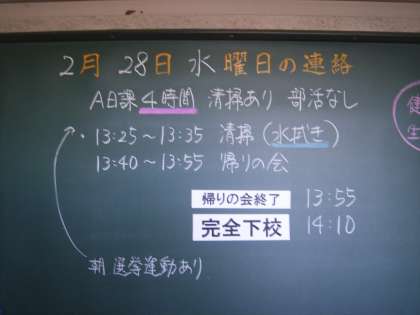 2月 28日 水曜日の連絡
A日課 4時間 清掃あり 部活なし
・13:25～13:35 清掃(水拭き)
13:40～13:55 帰りの会
帰りの会終了 13:55
完全下校 14:10
朝 選挙運動あり